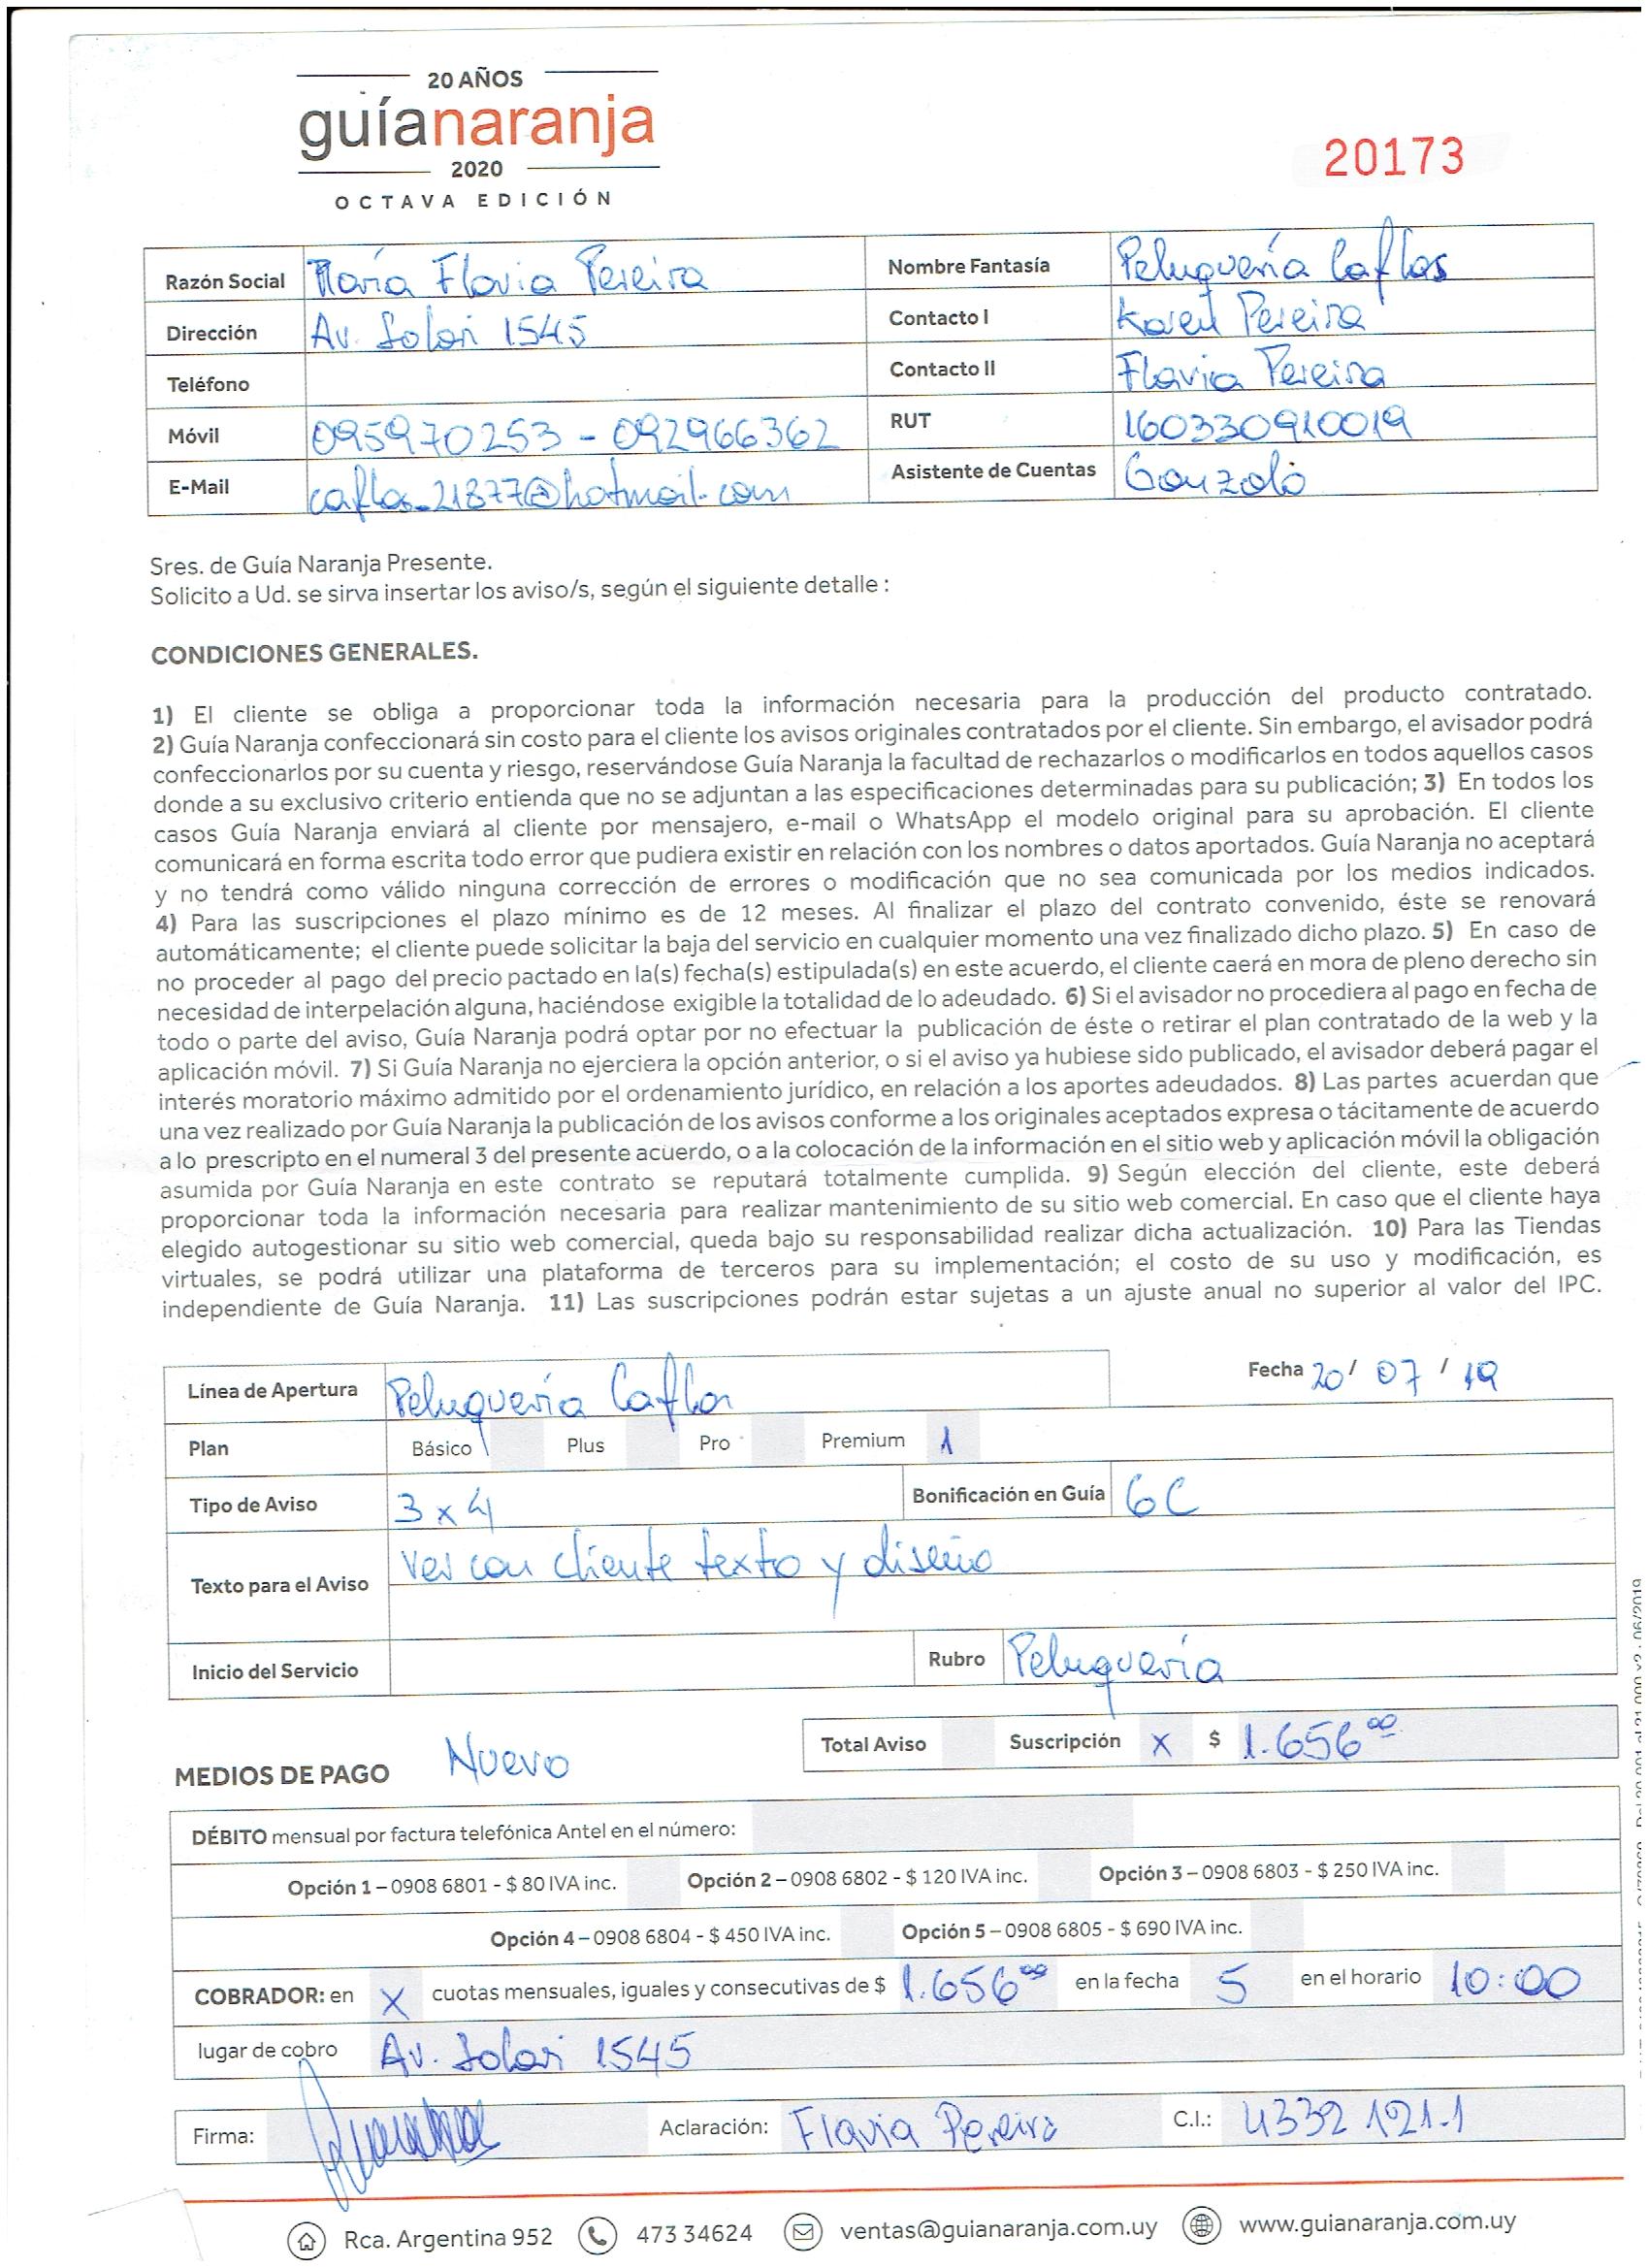 20 AÑOS
guíanaranja
2020
OCTAVA EDICIÓN
20173
Razón Social María Flavia Pereira Nombre Fantasía Peluquería Caflas
Dirección Av. Solari 1545 Contacto I Karen Pereira
Teléfono Contacto II Flavia Pereira
Móvil 095970253 - 092966362 RUT 160330910019
E-Mail caflas_21877@hotmail.com Asistente de Cuentas Gonzalo
Sres. de Guía Naranja Presente.
Solicito a Ud. se sirva insertar los aviso/s, según el siguiente detalle :
CONDICIONES GENERALES.
1) El cliente se obliga a proporcionar toda la información necesaria para la producción del producto contratado.
2) Guía Naranja confeccionará sin costo para el cliente los avisos originales contratados por el cliente. Sin embargo, el avisador podrá
confeccionarlos por su cuenta y riesgo, reservándose Guía Naranja la facultad de rechazarlos o modificarlos en todos aquellos casos
donde a su exclusivo criterio entienda que no se adjuntan a las especificaciones determinadas para su publicación; 3) En todos los
casos Guía Naranja enviará al cliente por mensajero, e-mail o WhatsApp el modelo original para su aprobación. El cliente
comunicará en forma escrita todo error que pudiera existir en relación con los nombres o datos aportados. Guía Naranja no aceptará
y no tendrá como válido ninguna corrección de errores o modificación que no sea comunicada por los medios indicados.
4) Para las suscripciones el plazo mínimo es de 12 meses. Al finalizar el plazo del contrato convenido, éste se renovará
automáticamente; el cliente puede solicitar la baja del servicio en cualquier momento una vez finalizado dicho plazo. 5) En caso de
no proceder al pago del precio pactado en la(s) fecha(s) estipulada(s) en este acuerdo, el cliente caerá en mora de pleno derecho sin
necesidad de interpelación alguna, haciéndose exigible la totalidad de lo adeudado. 6) Si el avisador no procediera al pago en fecha de
todo o parte del aviso, Guía Naranja podrá optar por no efectuar la publicación de éste o retirar el plan contratado de la web y la
aplicación móvil. 7) Si Guía Naranja no ejerciera la opción anterior, o si el aviso ya hubiese sido publicado, el avisador deberá pagar el
interés moratorio máximo admitido por el ordenamiento jurídico, en relación a los aportes adeudados. 8) Las partes acuerdan que
una vez realizado por Guía Naranja la publicación de los avisos conforme a los originales aceptados expresa o tácitamente de acuerdo
a lo prescripto en el numeral 3 del presente acuerdo, o a la colocación de la información en el sitio web y aplicación móvil la obligación
asumida por Guía Naranja en este contrato se reputará totalmente cumplida. 9) Según elección del cliente, este deberá
proporcionar toda la información necesaria para realizar mantenimiento de su sitio web comercial. En caso que el cliente haya
elegido autogestionar su sitio web comercial, queda bajo su responsabilidad realizar dicha actualización. 10) Para las Tiendas
virtuales, se podrá utilizar una plataforma de terceros para su implementación; el costo de su uso y modificación, es
independiente de Guía Naranja. 11) Las suscripciones podrán estar sujetas a un ajuste anual no superior al valor del IPC.
Línea de Apertura Peluquería Caflas Fecha 20 / 07 / 19
Plan Básico Plus Pro Premium 1
Tipo de Aviso 3 x 4 Bonificación en Guía 6C
Texto para el Aviso Ver con cliente texto y diseño
Inicio del Servicio Rubro Peluquería
Total Aviso Suscripción X $ 1.656 00
MEDIOS DE PAGO Nuevo
DÉBITO mensual por factura telefónica Antel en el número:
Opción 1 – 0908 6801 - $ 80 IVA inc. Opción 2 – 0908 6802 - $ 120 IVA inc. Opción 3 – 0908 6803 - $ 250 IVA inc.
Opción 4 – 0908 6804 - $ 450 IVA inc. Opción 5 – 0908 6805 - $ 690 IVA inc.
COBRADOR: en X cuotas mensuales, iguales y consecutivas de $ 1.656 00 en la fecha 5 en el horario 10:00
lugar de cobro Av. Solari 1545
Firma: Aclaración: Flavia Pereira C.I.: 4332 121-1
Rca. Argentina 952 473 34624 ventas@guianaranja.com.uy www.guianaranja.com.uy